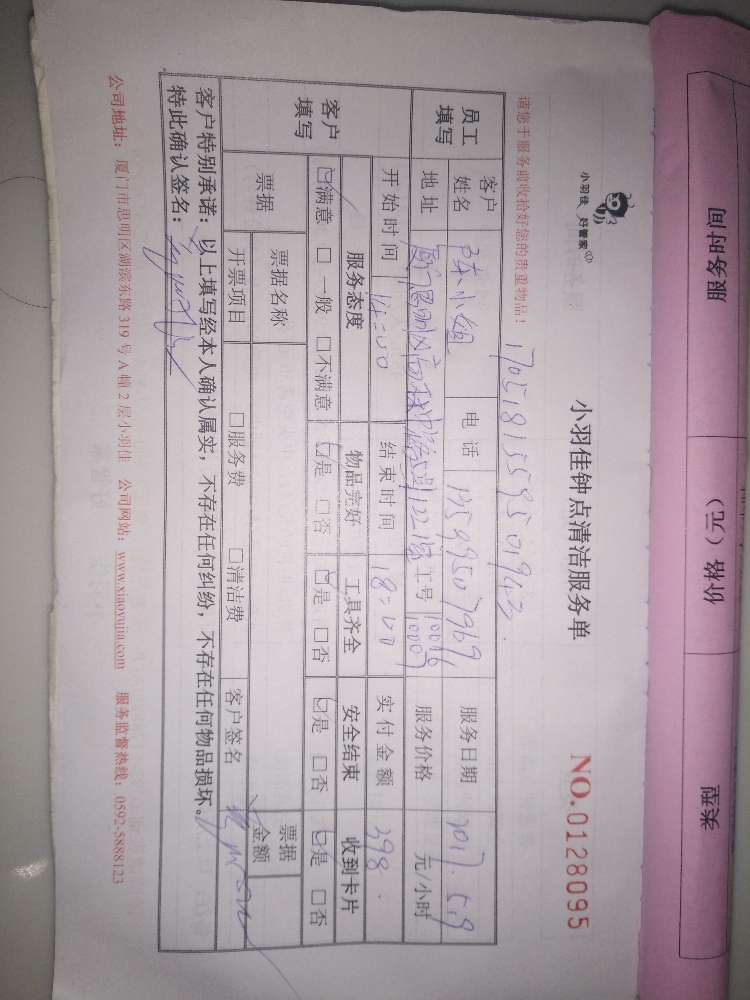 小羽佳 好管家
小羽佳钟点清洁服务单
NO.0128095
请您于服务前收拾好您的贵重物品！
员工填写
客户姓名
陈小姐
电话
13599507969
服务日期
2017.5.9
地址
工号
10016
10007
服务价格
元/小时
开始时间
14:00
结束时间
18:00
实付金额
398.
客户填写
服务态度
物品完好
工具齐全
安全结束
收到卡片
☑满意 □一般 □不满意
☑是 □否
☑是 □否
☑是 □否
☑是 □否
票据
票据名称
票据金额
开票项目
□服务费 □清洁费
客户签名
客户特别承诺：以上填写经本人确认属实，不存在任何纠纷，不存在任何物品损坏。
特此确认签名：
公司地址：厦门市思明区湖滨东路 319 号 A 幢 2 层小羽佳 公司网站：www.xiaoyujia.com 服务监督热线：0592-5888123
服务时间
价格（元）
类型